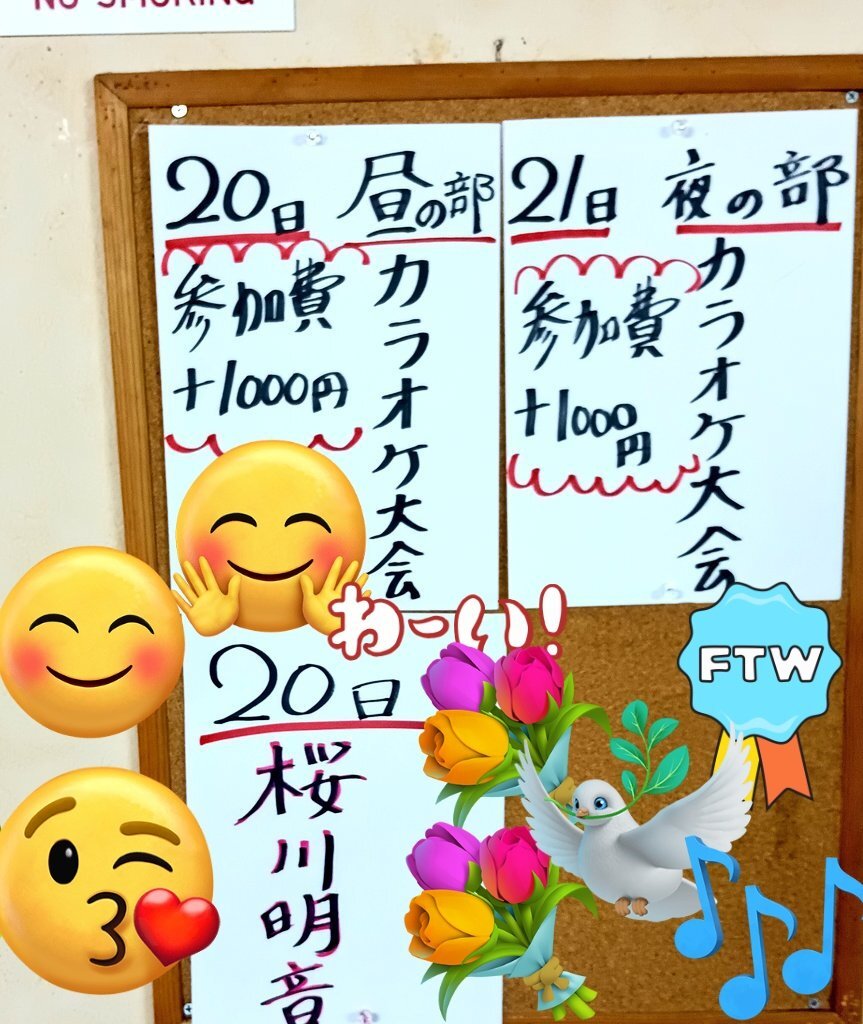 NO SMOKING
20日 昼の部
カラオケ大会
参加費
+1000円
21日 夜の部
カラオケ大会
参加費
+1000
円
わーい!
FTW
20日
桜川明音